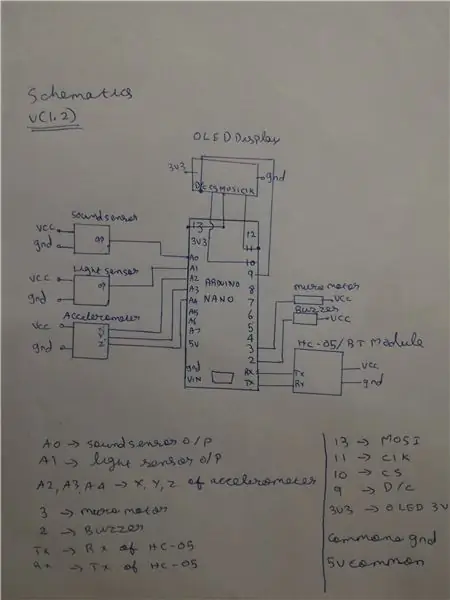 Schematics
V(1.2)
OLED Display
3V3
gnd
D/C CS MOSI CLK
Sound sensor
VCC
gnd
OP
Light sensor
VCC
gnd
OP
Accelerometer
VCC
gnd
X
Y
Z
13
3V3
A0
A1
A2
A3
A4
A5
A6
A7
5V
gnd
VIN
ARDUINO
NANO
12
11
10
9
8
7
6
5
4
3
2
Rx
Tx
micro motor
VCC
Buzzer
VCC
HC-05/BT Module
Tx
Rx
VCC
gnd
A0 → sound sensor O/P
A1 → light sensor O/P
A2, A3, A4 → X, Y, Z of accelerometer
3 → micro motor
2 → Buzzer
Tx → Rx of HC-05
Rx → Tx of HC-05
13 → MOSI
11 → CLK
10 → CS
9 → D/C
3V3 → OLED 3V
Common gnd
5V common